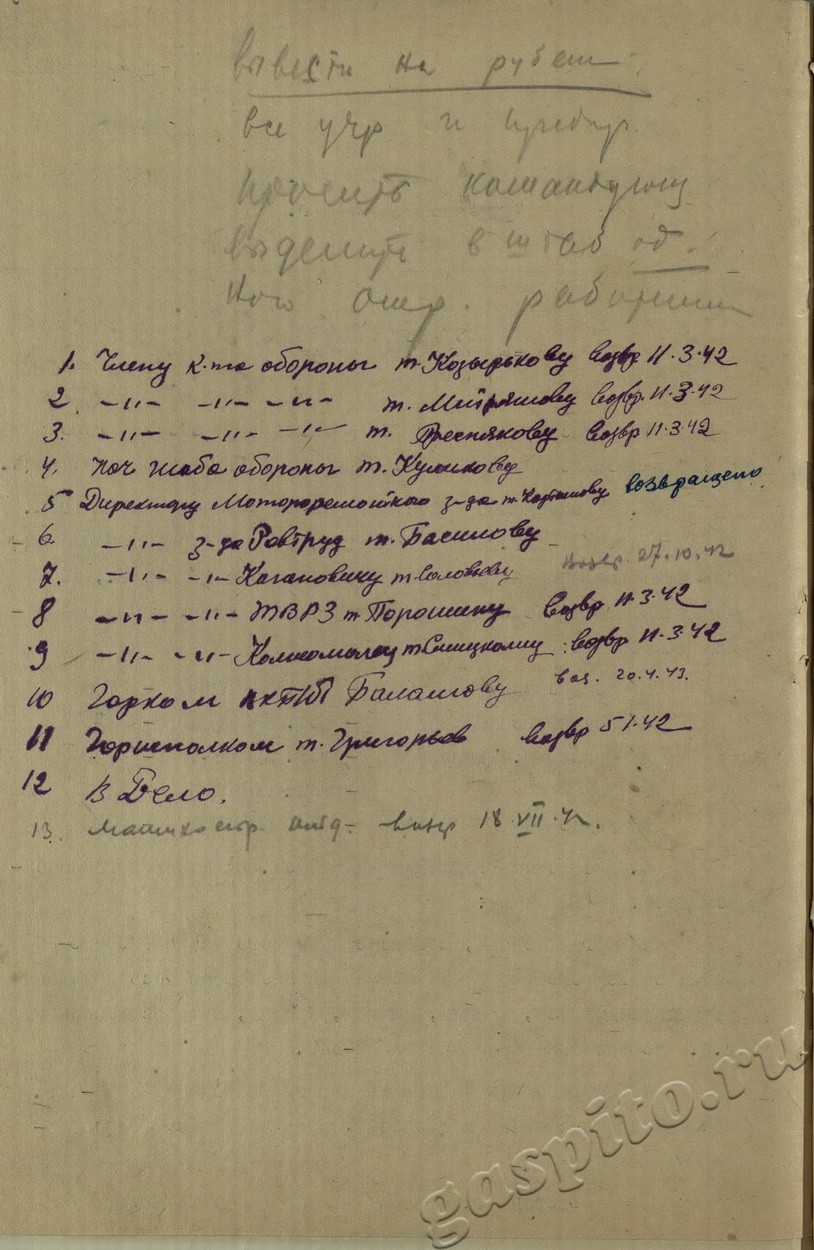 вывести на рубеж
все учр и
просить командующ
выделить в штаб од-
ного опер. работника
1. Члену к-та обороны т. Козырькову возвр 11.3.42
2. -"- -"- -"- т. возвр. 11.3.42
3. -"- -"- -"- т. Преснякову возвр 11.3.42
4. Нач штаба обороны т. Куликову
5 Директору Мотороремонтного з-да т. возвращено.
6. -"- з-да Ревтруд т. Басилову
7. -"- -"- Кагановичу т. Соловьеву возвр. 27.10.42
8 -"- -"- ТВРЗ т. Порошину возвр 11.3.42
9 -"- -"- Комсомолец т. Синицкому возвр 11.3.42
10 Горком ВКП(б) Балашову воз. 20.4.43.
11 Горисполком т. Григорьев возвр 5 1.42
12 В Дело.
13. отд- возвр 18.VII.42.
gaspito.ru